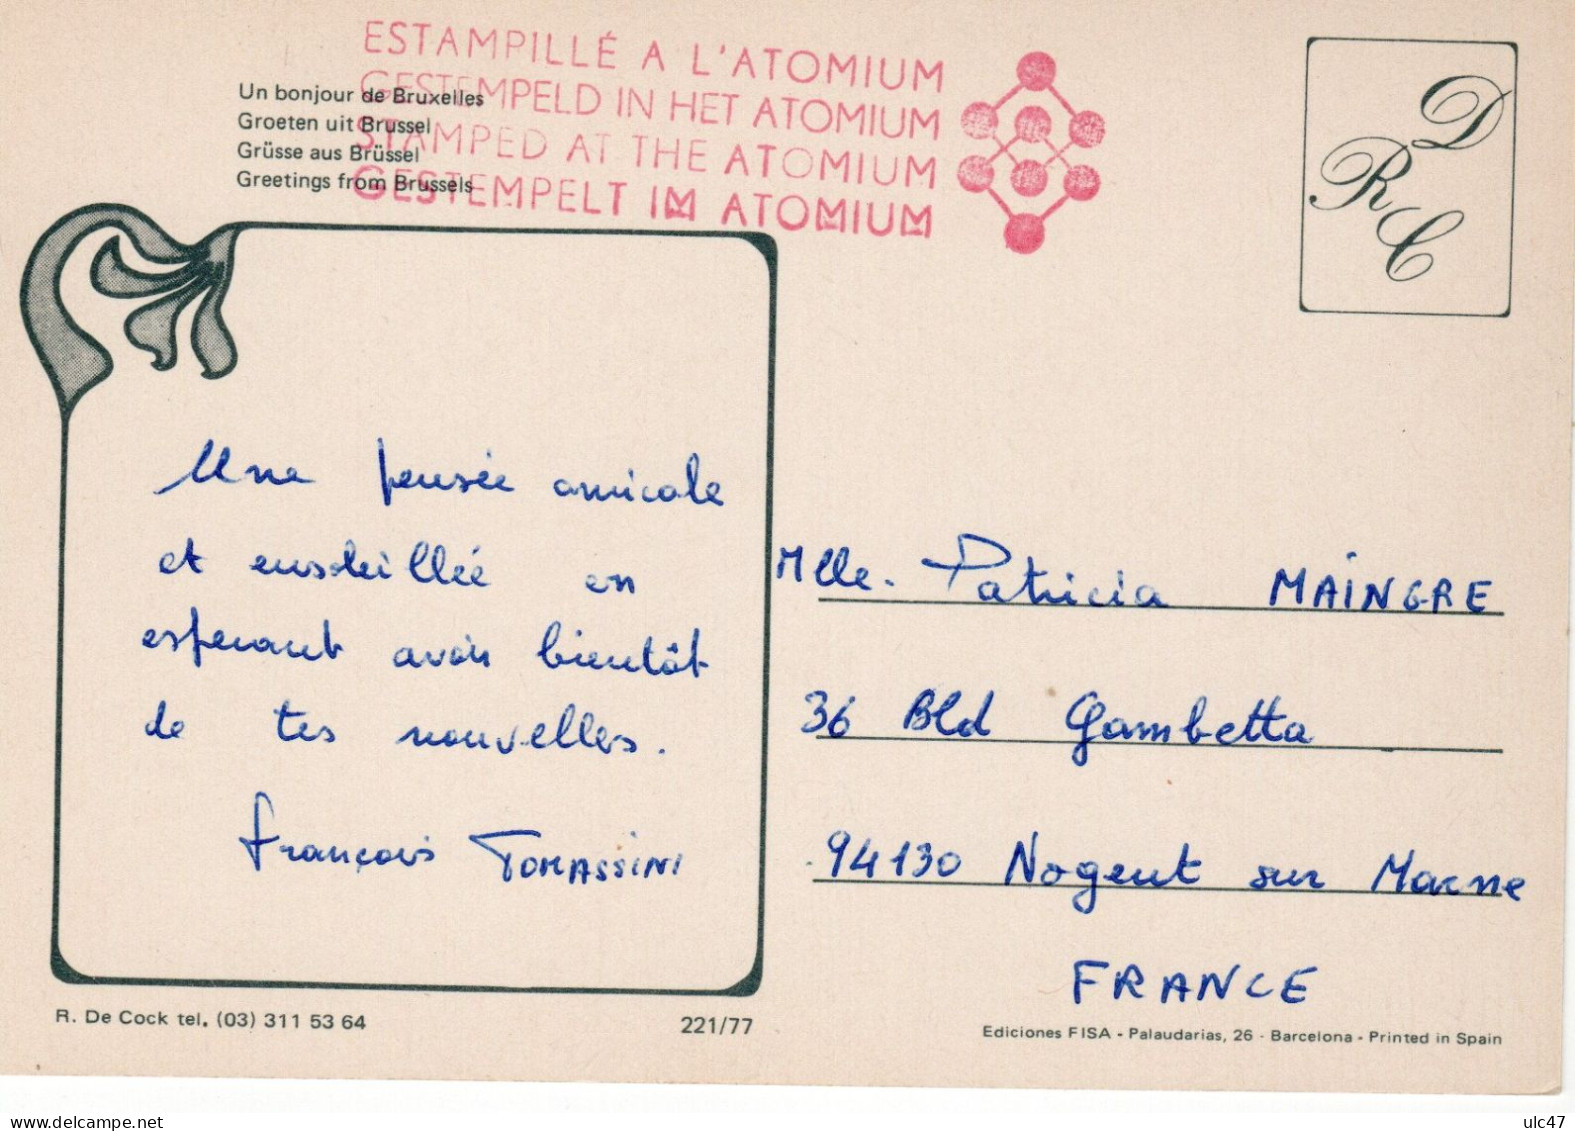 ESTAMPILLÉ A L'ATOMIUM
GESTEMPELD IN HET ATOMIUM
STAMPED AT THE ATOMIUM
GESTEMPELT IM ATOMIUM
Un bonjour de Bruxelles
Groeten uit Brussel
Grüsse aus Brüssel
Greetings from Brussels
D
R
C
Une pensée amicale
et ensoleillée en
esperant avoir bientôt
de tes nouvelles.
François TOMASSINI
Mlle. Patricia MAINGRE
36 Bld Gambetta
94130 Nogent sur Marne
FRANCE
R. De Cock tel. (03) 311 53 64
221/77
Ediciones FISA - Palaudarias, 26 - Barcelona - Printed in Spain
ulc47